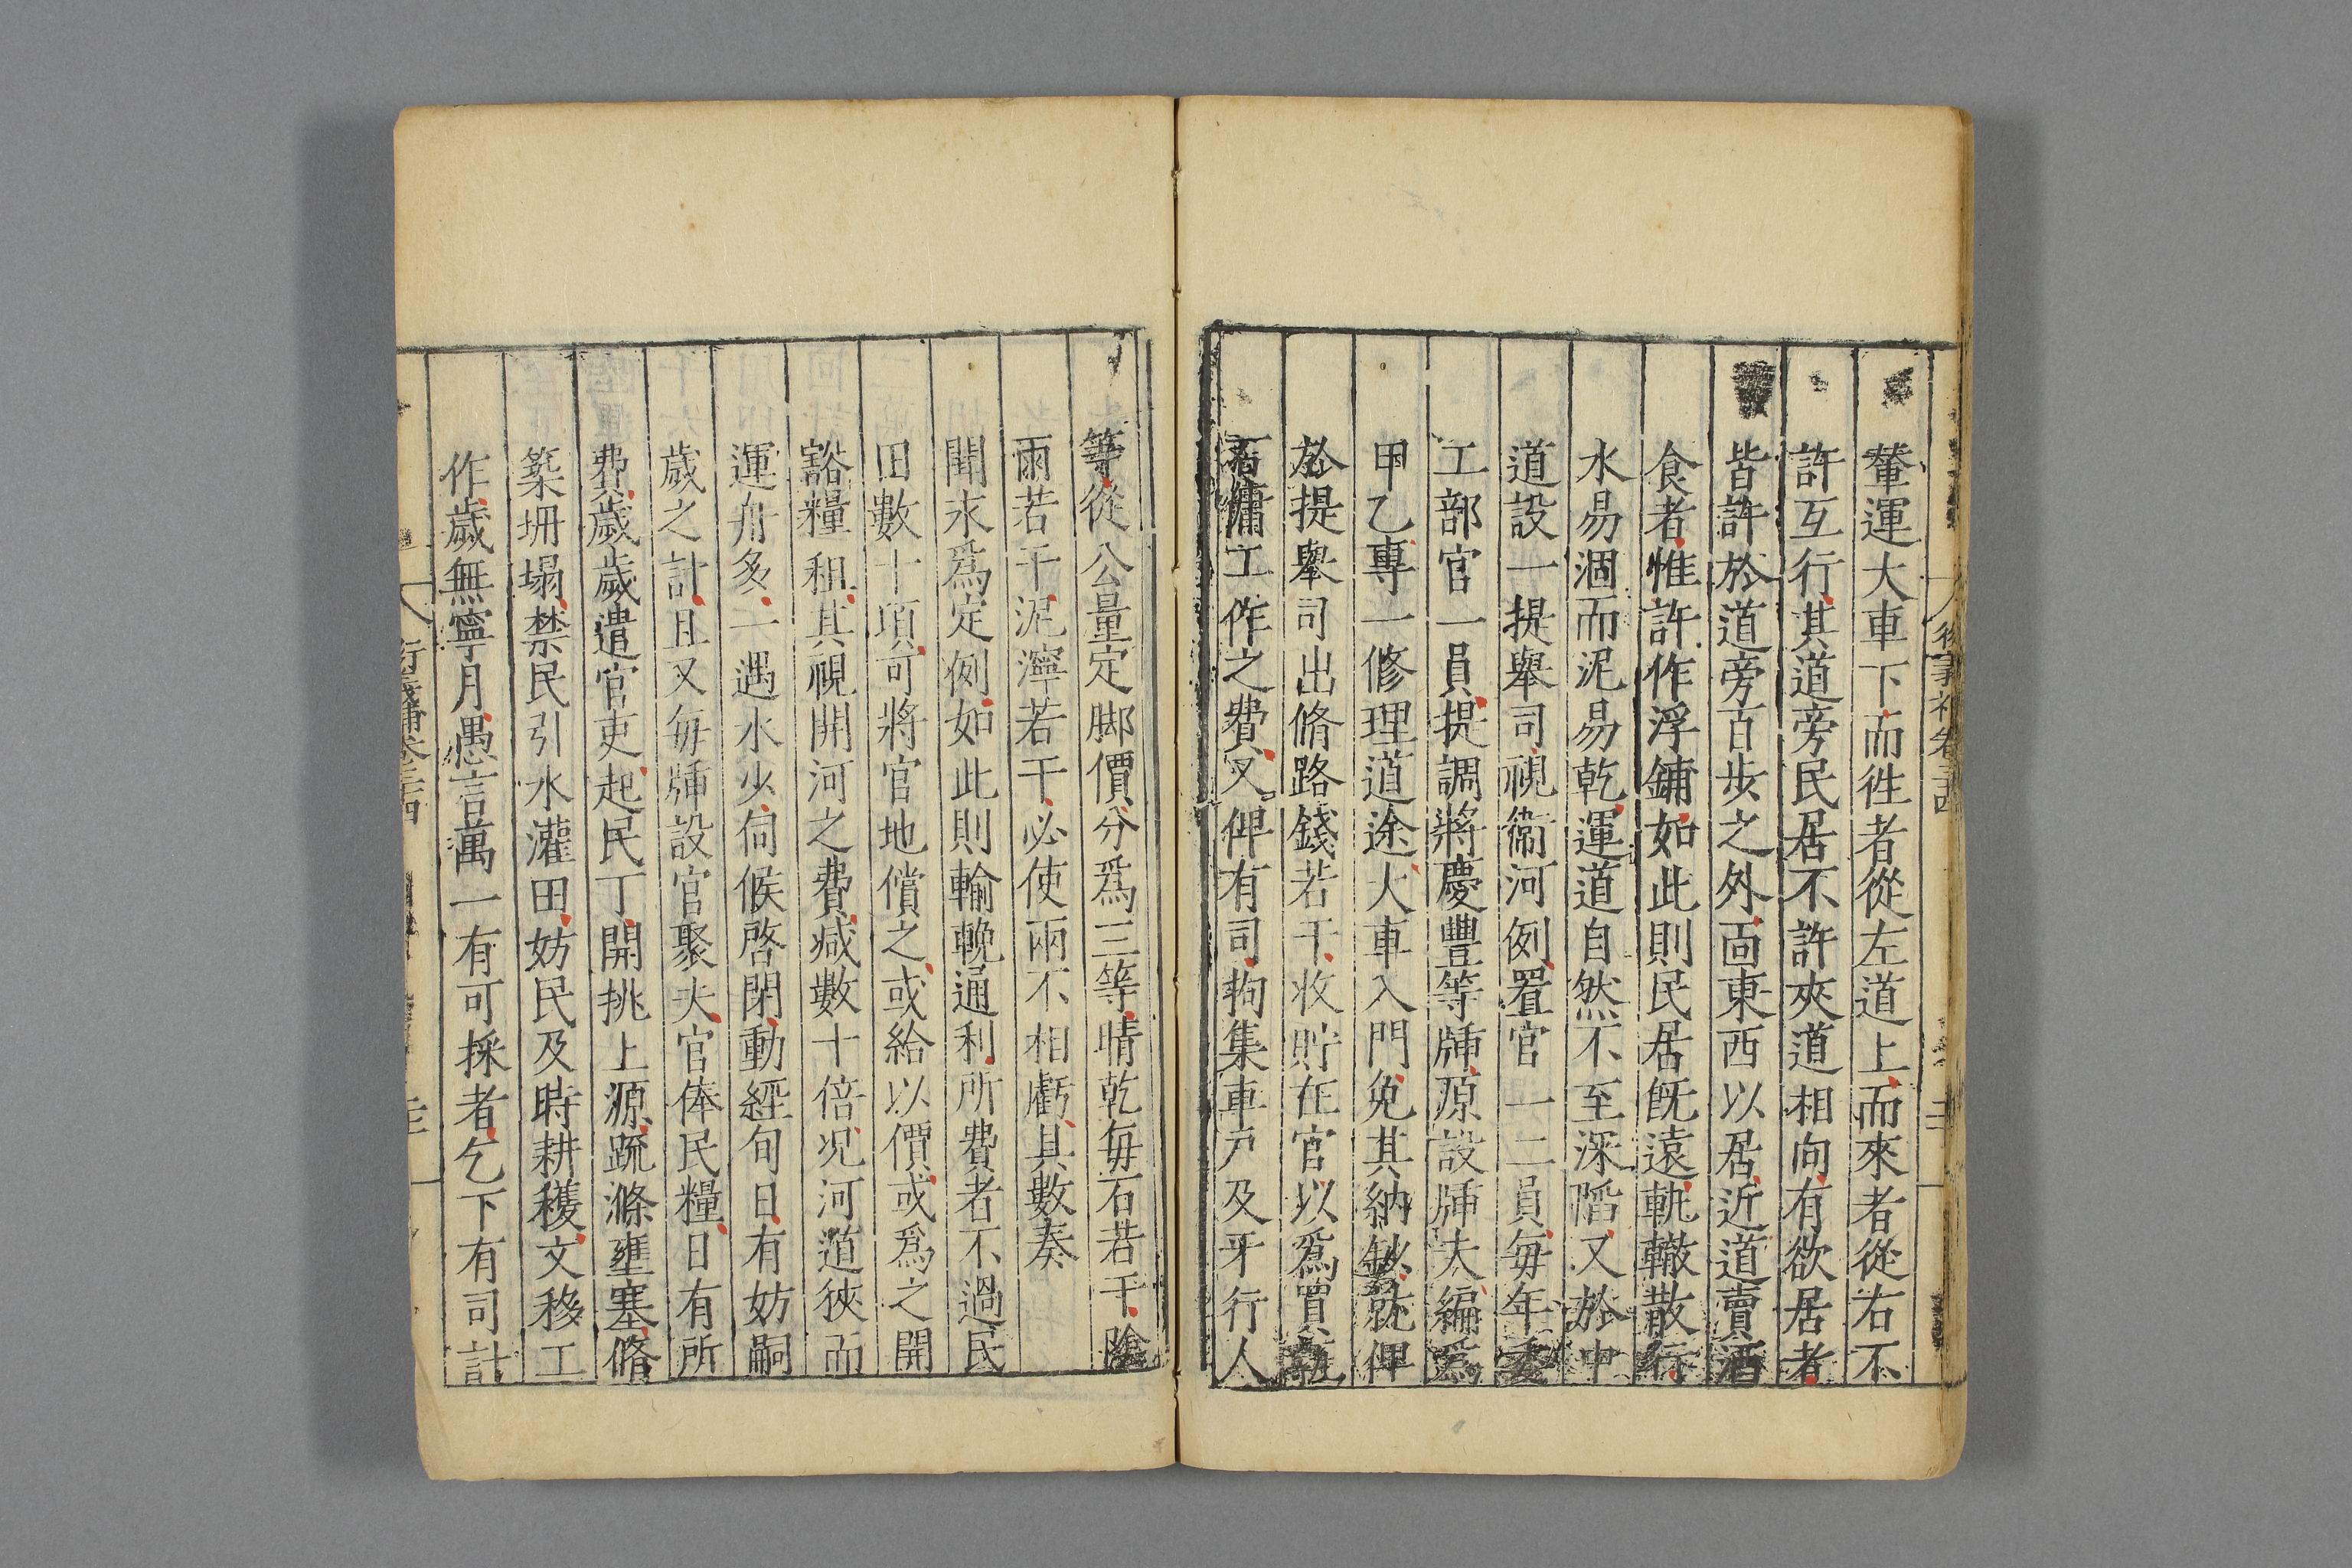 輦運大車下而徃者從左道上而來者從右不
許互行其道旁民居不許夾道相向有欲居者
皆許於道旁百步之外面東西以居近道賣酒
食者惟許作浮鋪如此則民居旣遠軌轍散行
水易涸而泥易乾運道自然不至深䧟又於中
道設一提舉司視衛河例置官一二員每年委
工部官一員提調將慶豐等牐原設牐夫編爲
甲乙專一修理道途大車入門免其納鈔就俾
於提舉司出脩路錢若干收貯在官以爲買
石傭工作之費又俾有司拘集車戶及牙行人
等從公量定脚價分爲三等晴乾每石若干陰
雨若干泥濘若干必使兩不相虧具數奏
聞永爲定例如此則輸輓通利所費者不過民
田數十項可將官地償之或給以價或爲之開
豁糧租其視開河之費减數十倍况河道狹而
運舟多一遇水少伺候啓閉動經旬日有妨嗣
歲之計且又每牐設官聚夫官俸民糧日有所
費歲歲遣官吏起民丁開挑上源䟽滌壅塞脩
築坍塌禁民引水灌田妨民及時耕穫文移工
作歲無寧月愚言萬一有可採者乞下有司計
衍義補卷三十四